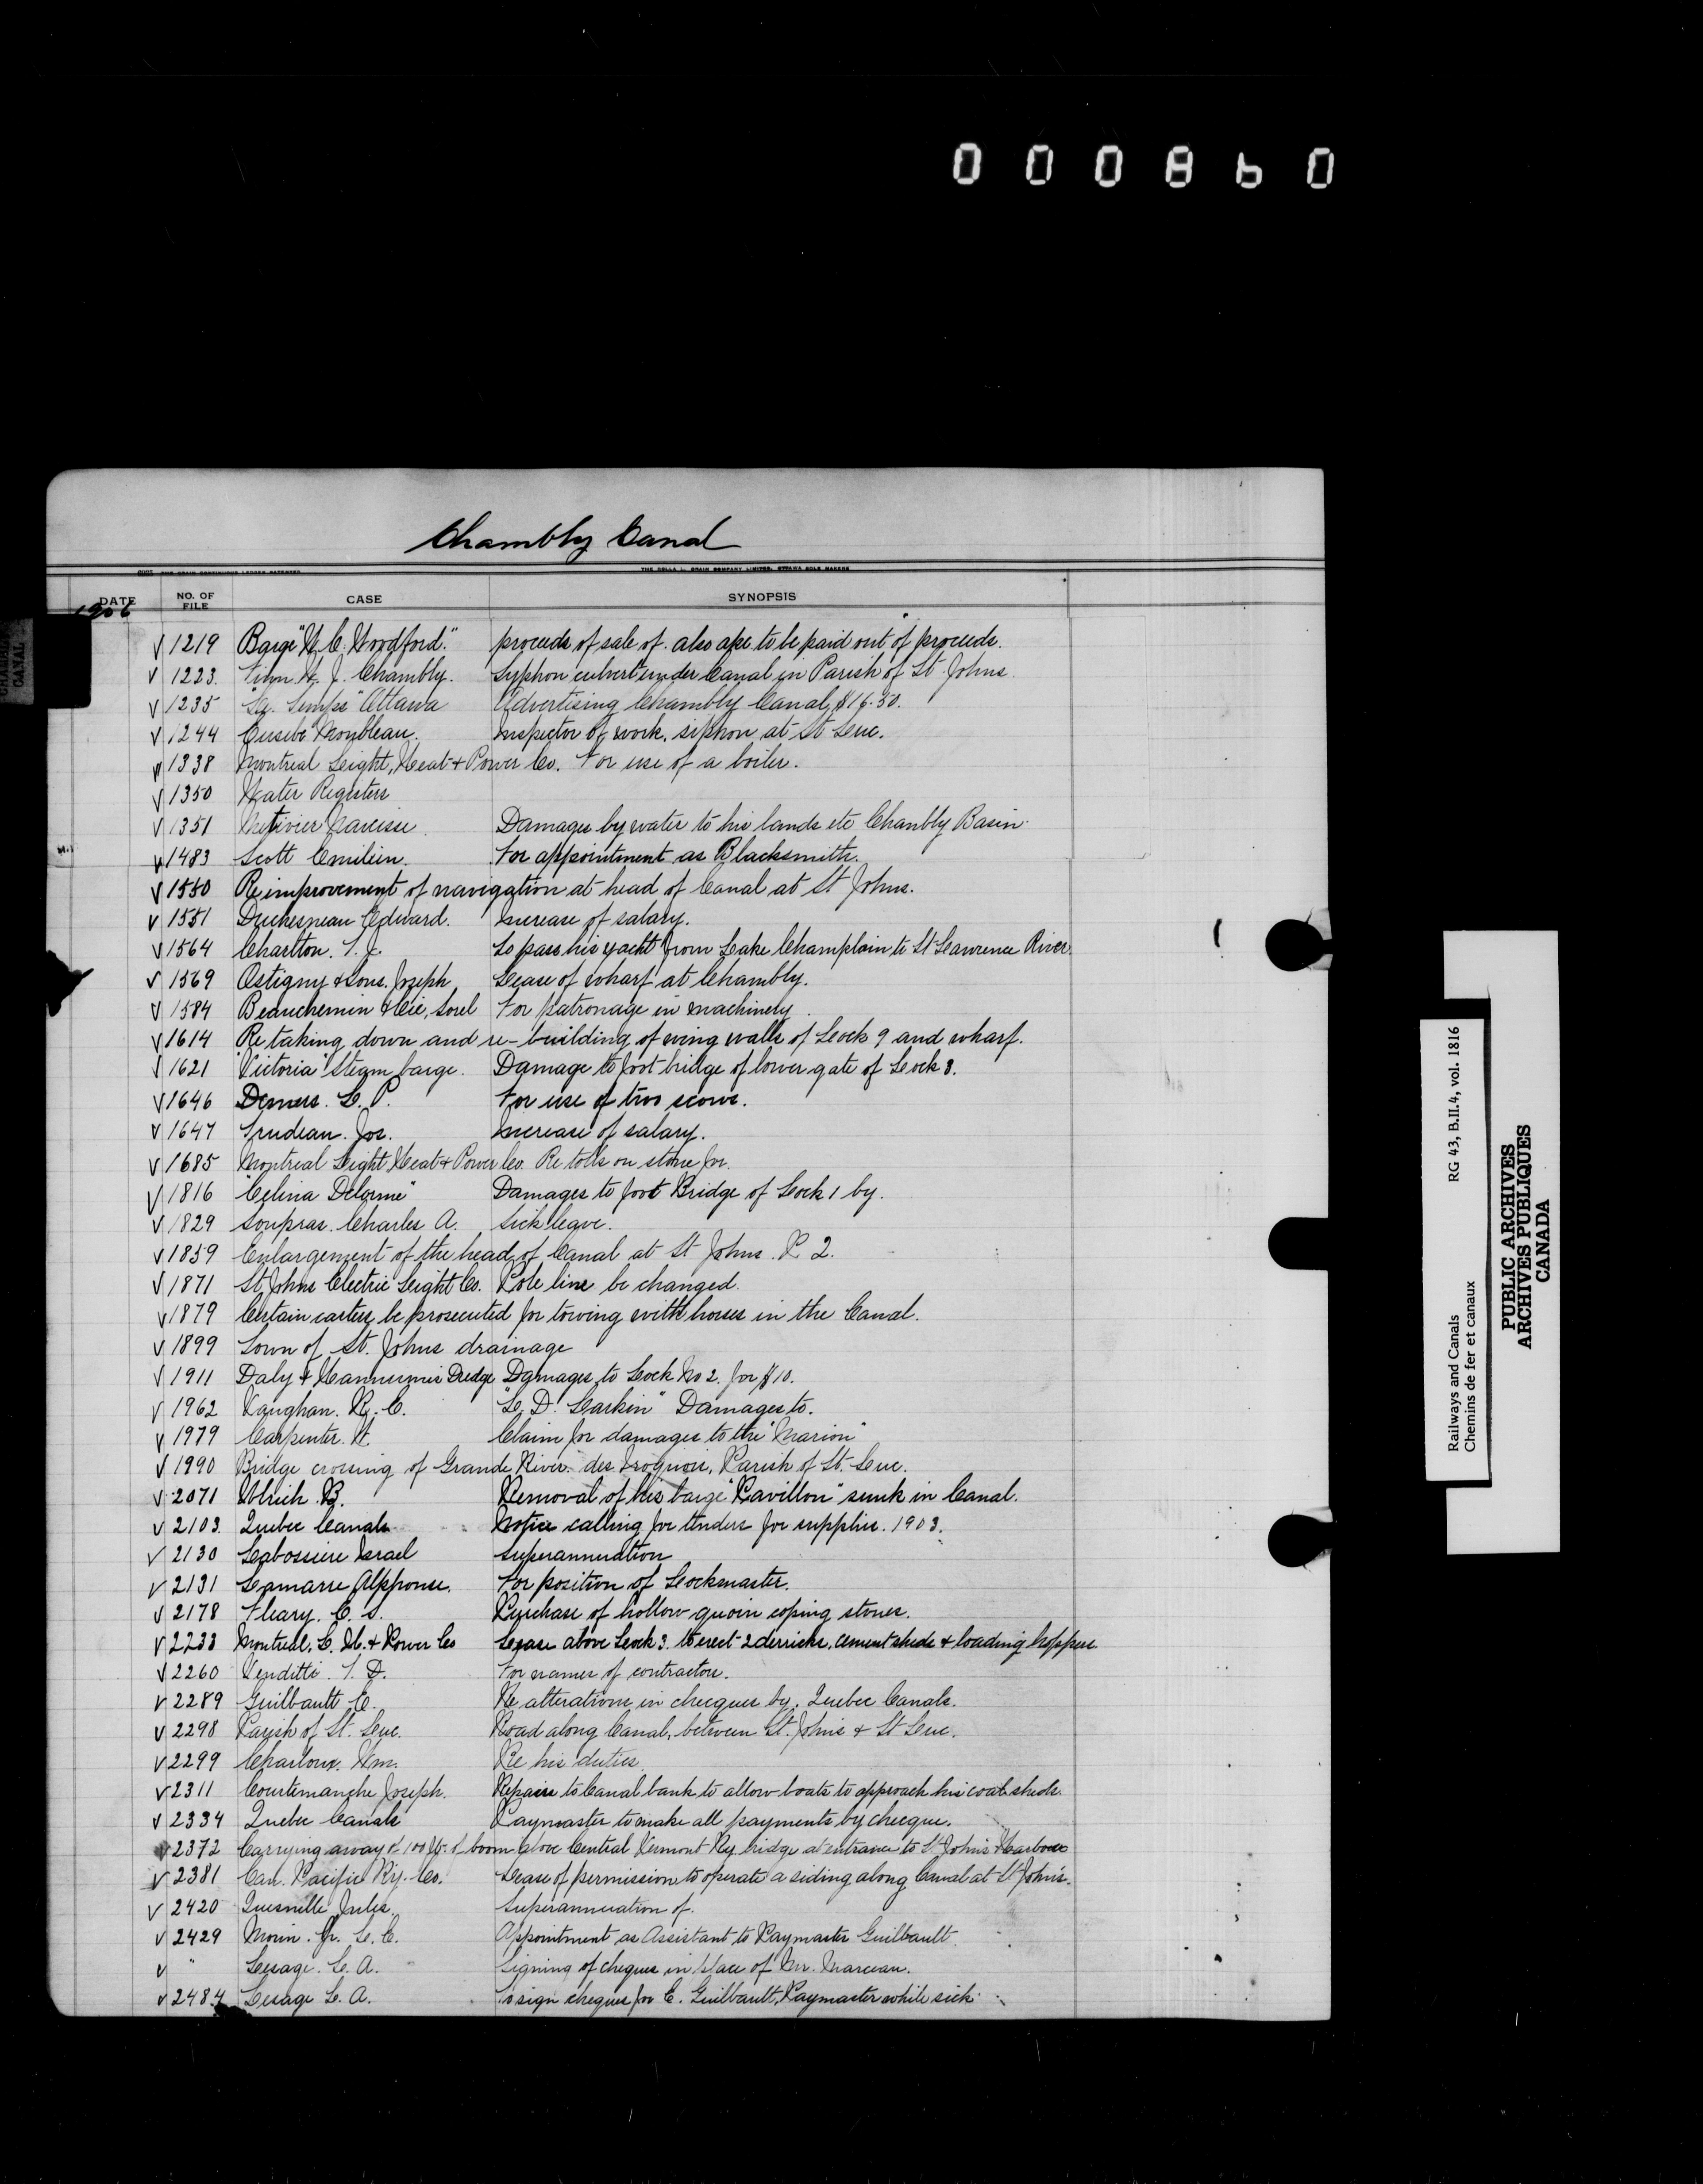 000860
Chambly Canal
THE ROLLA L. CRAIN COMPANY LIMITED, OTTAWA SOLE MAKERS
DATE NO. OF FILE CASE SYNOPSIS
1906
CHAMBLY CANAL
1219 Barge "W. C. Woodford." proceeds of sale of. also to be paid out of proceeds.
1223. H. J. Chambly. Syphon culvert under Canal in Parish of St Johns
1235 "Le Temps" Ottawa Advertising Chambly Canal $16.50.
1244 Eusebe Monbleau. Inspector of work, siphon at St Luc.
1338 Montreal Light, Heat & Power Co. For use of a boiler.
1350 Water Registers
1351 Metivier Narcisse. Damages by water to his lands etc Chambly Basin.
1483 Scott Emilien. For appointment as Blacksmith.
1550 Re improvement of navigation at head of Canal at St Johns.
1551 Duchesneau Edward. Increase of salary.
1564 Charlton. T. J. To pass his yacht from Lake Champlain to St Lawrence River.
1569 Ostigny & Sons. Joseph Lease of wharf at Chambly.
1584 Beauchemin & Cie, Sorel For patronage in machinery.
1614 Re taking down and re-building of wing walls of Lock 9 and wharf.
1621 "Victoria" Steam barge. Damage to foot bridge of lower gate of Lock 8.
1646 Demers. L. P. For use of two scows.
1647 Trudeau. Jos. Increase of salary.
1685 Montreal Light Heat & Power Co. Re tolls on stone for.
1816 "Celina Delorme" Damages to foot Bridge of Lock 1 by.
1829 Soupras. Charles A. Sick leave.
1859 Enlargement of the head of Canal at St Johns. P. 2.
1871 St. Johns Electric Light Co. Pole line be changed.
1879 Certain carters be prosecuted for towing with horses in the Canal.
1899 Town of St. Johns drainage
1911 Daly & Dredge Damages to Lock No 2. for $10.
1962 Vaughan. R. C. "L. D. Larkin" Damages to.
1979 Carpenter. W. Claim for damages to the "Marion"
1990 Bridge crossing of Grande River des Iroquois, Parish of St. Luc.
2071 Ulrich. B. Removal of his barge "Pavillon" sunk in Canal.
2103. Quebec Canals Notice calling for tenders for supplies. 1903.
2130 Labossiere Israel Superannuation
2131 Lamarre Alphonse. For position of Lockmaster.
2178 Fleary. C. S. Purchase of hollow quoin coping stones.
2233 Montreal, L. H. & Power Co Lease above Lock 3. to erect 2 derricks, cement sheds & loading hoppers
2260 Venditti. T. D. For names of contractors.
2289 Guilbault E. Re alterations in checques by, Quebec Canals.
2298 Parish of St. Luc. Road along Canal, between St. Johns & St Luc.
2299 Charloux. Wm. Re his duties
2311 Courtemanche Joseph. Repairs to Canal bank to allow boats to approach his coal sheds.
2334 Quebec Canals Paymaster to make all payments by checque.
2372 Carrying away of 100 ft. of boom above Central Vermont Ry bridge at entrance to St Johns Harbour
2381 Can. Pacific Ry. Co. Lease of permission to operate a siding along Canal at St Johns.
2420 Quesnelle Jules. Superannuation of.
2429 Morin. Jr. L. C. Appointment as Assistant to Paymaster Guilbault.
" Lesage. L. A. Signing of cheques in place of Mr. Marceau.
2484 Lesage L. A. To sign cheques for E. Guilbault, Paymaster while sick.
Railways and Canals RG 43, B.II.4, vol. 1816
Chemins de fer et canaux
PUBLIC ARCHIVES
ARCHIVES PUBLIQUES
CANADA